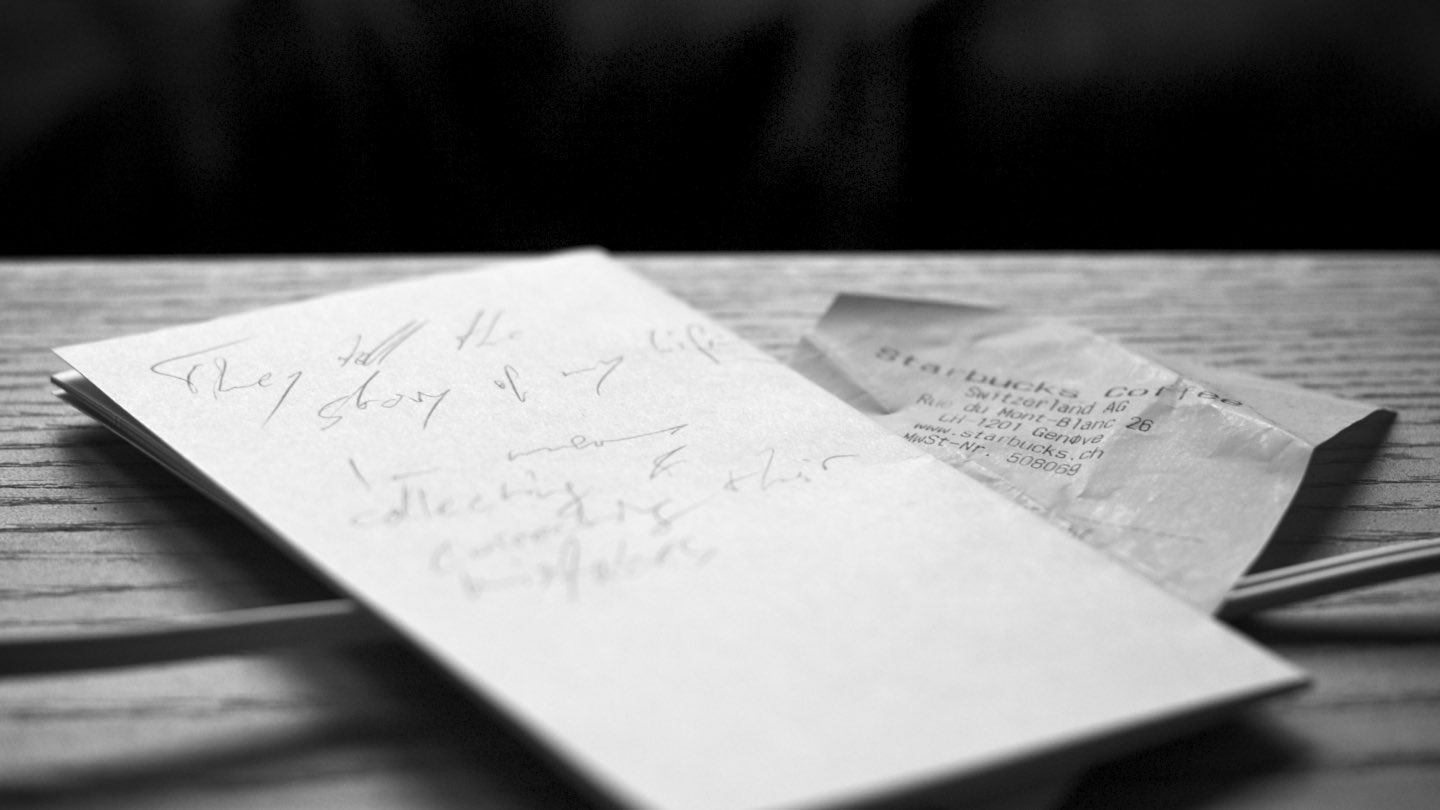 They tell the
story of my life
I mean
collecting &
correcting their
mistakes
Starbucks Coffee
Switzerland AG
Rue du Mont-Blanc 26
CH-1201 Genève
www.starbucks.ch
MwSt-Nr. 508069